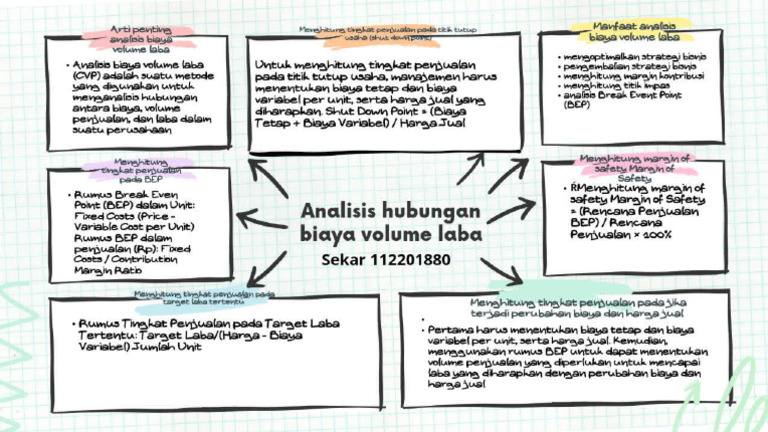 Arti penting
analisis biaya
volume laba
• Analisis biaya volume laba
(CVP) adalah suatu metode
yang digunakan untuk
menganalisis hubungan
antara biaya, volume
penjualan, dan laba dalam
suatu perusahaan
Menghitung tingkat penjualan pada titik tutup
usaha (shut down point)
Untuk menghitung tingkat penjualan
pada titik tutup usaha, manajemen harus
menentukan biaya tetap dan biaya
variabel per unit, serta harga jual yang
diharapkan. Shut Down Point = (Biaya
Tetap + Biaya Variabel) / Harga Jual
Manfaat analisis
biaya volume laba
• mengoptimalkan strategi bisnis
• pengembalian strategi bisnis
• menghitung margin kontribusi
• menghitung titik impas
• analisis Break Event Point
(BEP)
Menghitung
tingkat penjualan
pada BEP
• Rumus Break Even
Point (BEP) dalam Unit:
Fixed Costs (Price –
Variable Cost per Unit)
Rumus BEP dalam
penjualan (Rp): Fixed
Costs / Contribution
Margin Ratio
Analisis hubungan
biaya volume laba
Sekar 112201880
Menghitung margin of
safety Margin of
Safety
• RMenghitung margin of
safety Margin of Safety
= (Rencana Penjualan
BEP) / Rencana
Penjualan × 100%
Menghitung tingkat penjualan pada
target laba tertentu
• Rumus Tingkat Penjualan pada Target Laba
Tertentu: Target Laba/(Harga - Biaya
Variabel) Jumlah Unit
Menghitung tingkat penjualan pada jika
terjadi perubahan biaya dan harga jual
•
• Pertama harus menentukan biaya tetap dan biaya
variabel per unit, serta harga jual. Kemudian,
menggunakan rumus BEP untuk dapat menentukan
volume penjualan yang diperlukan untuk mencapai
laba yang diharapkan dengan perubahan biaya dan
harga jual